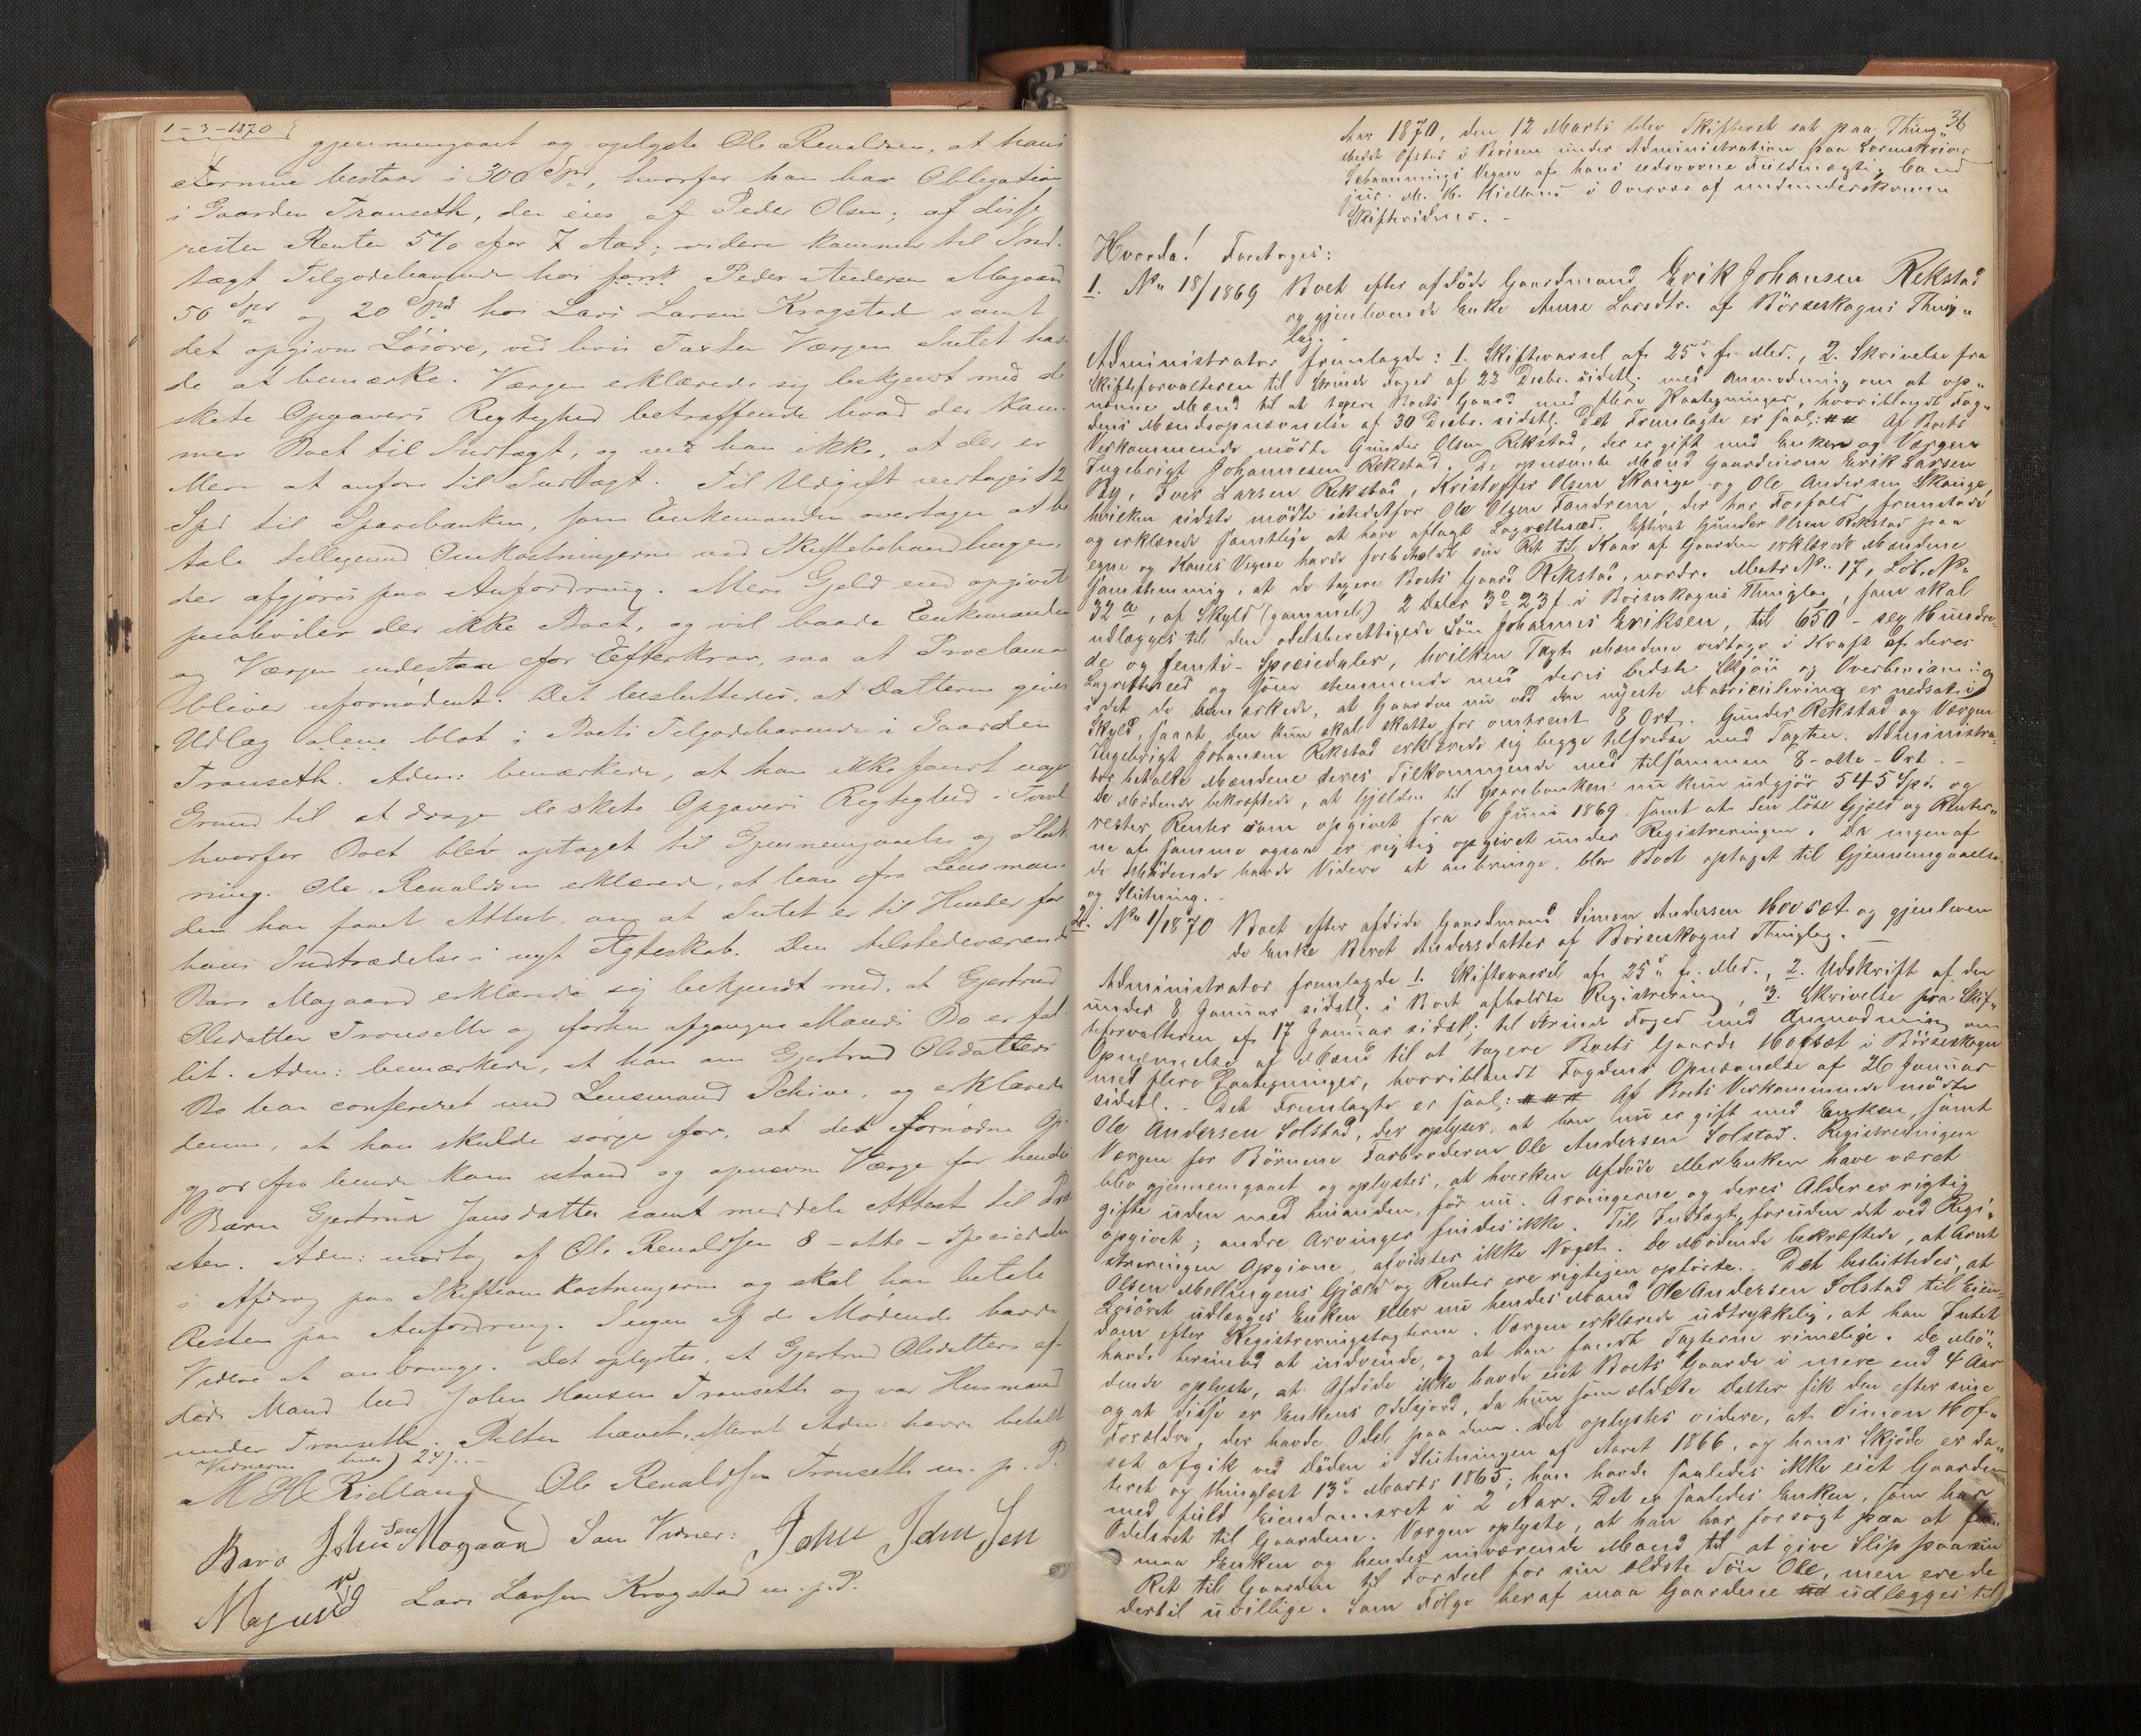 1-3-1870
gjennemgaaet og oplyste Ole Renaldsen, at hans
Formue bestaar i 300 Spd, hvorfor han har Obligation
i Gaarden Transeth, der eies af Peder Olsen; af disse
rester Renter 5% for 7 Aar; videre kommer til Ind-
tægt Tilgodehavende hos Peder Andersen Mogaard
50 Spd og 20 Spd hos Lars Larsen Krogstad samt
det opgivne Løsøre, ved hvis Taxter Værgen Intet hav-
de at bemærke. Værgen erklærede sig bekjendt med de
skete Opgavers Rigtighed betræffende hvad der kom-
mer Boet til Indtægt, og ved han ikke, at der er
Mere at anføre til Indtægt. Til Udgift vedtages 12
Spd til Sparebanken, som Enkemanden overtager at be-
tale tilligemed Omkostningerne ved Skiftebehandlingen,
der afgjøres paa Anfordring. Mere Gjeld end opgivet
paahviler der ikke Boet, og vil baade Enkemanden
og Værgen indestaa for Efterkrav, saa at Proclama
bliver ufornødent. Det besluttedes, at Datteren gives
Udlæg alene blot i Boets Tilgodehavende i Gaarden
Transeth. Adm: bemærkede, at han ikke fandt nogen
Grund til at drage de skete Opgavers Rigtighed i Tvivl
hvorfor Boet blev optaget til Gjennemgaaelse og Slut-
ning. Ole Renaldsen erklærede, at han fra Lensman-
den har faaet Attest om at Intet er til Hinder for
hans Indtrædelse i nyt Ægteskab. Den tilstedeværende
Baro Mogaard erklærede sig bekjendt med, at Gjertrud
Olsdatter Tronseth og forhen afgangne Mands Bo er fal-
lit. Adm: bemærkede, at han om Gjertrud Olsdatters
Bo har confereret med Lensmand Schive, og erklærede
denne, at han skulde sørge for, at det fornødne Op-
gjør fra hende kom istand og opnævn Værge for hendes
Barn Gjertrud Jonsdatter samt meddele Attest til Præ-
sten. Adm: modtog af Ole Renaldsen 8 - otte - Speciedaler
i Afdrag paa Skifteomkostningerne og skal han betale
Resten paa Anfordring. Ingen af de Mødende havde
Videre at anbringe. Det oplystes, at Gjertrud Olsdatters af-
døde Mand hed John Hansen Tronseth og var Husmand
under Tronseth. Retten hævet, Mærk Adm: havde betalt
Vidnerne hver 24 ß. -
M H Kielland Ole Renaldsen Tronseth m. p. P.
Baro John Sen Mogaard Som Vidner: John John Sen
Lars Larsen Krogstad m. p. P.
36
Aar 1870, den 12 Marts blev Skifteret sat paa Thing-
stedet Ofstad i Børsen under Administration paa Sorenskriver
Vegne af hans edsvorne Fuldmægtig, Cand
jur. M. H. Kielland i Overvær af undunderskrevne
Skiftevidner. -
Hvorda! Foretoges:
1. No 18/1869 Boet efter afdøde Gaardmand Erik Johansen Rekstad
og gjenlevende Enke Anne Larsdtr. af Børseskogns Thing-
lag. -
Administrator fremlagde: 1. Skiftevarsel af 25 f. Md., 2. Skrivelse fra
Skifteforvalteren til Strinde Foged af 22 Decbr. sidstl. med Anmodning om at op-
nævne Mænd til at taxere Boets Gaard med flere Paategninger, hvoriblandt Fog-
dens Mændsopnævnelse af 30 Decbr. sidstl. Det Fremlagte er saal: ## Af Boets
Vedkommende mødte Gunder Olsen Rekstad, der er gift med Enken og Værgen
Ingebrigt Johannesen Rekstad. De opnævnte Mænd Gaardeierne Erik Larsen
By, Iver Larsen Rekstad, Kristoffer Olsen Skange og Ole Andersen Skange,
hvilken sidste mødte istedetfor Ole Olsen Fandrem, der har Forfald, fremstode
og erklærede samtlige at have aflagt Lagretteed. Efterat Gunder Olsen Rekstad paa
egne og Kones Vegne havde forbeholdt sin Ret til Kaar af Gaarden erklærede Mændene
samstemmig, at de taxere Boets Gaard Rekstad, nordre Matr No. 17, Löb. No
32 a, af Skyld (gammel) 2 Daler 3 o 23 ß i Børseskogns Thinglag, som skal
udlægges til den odelsberettigede Søn Johannes Eriksen, til 650 - sex Hundre-
de og femti - Speciedaler, hvilken Taxt Mændene vedtage i Kraft af deres
Lagretteeed og som stemmende med deres bedste Skjøn og Overbevisning
idet de bemærkede, at Gaarden nu ved den nyeste Matriculering er nedsat i
Skyld, saaat den kun skal skatte for omtrent 8 Ort. Gunder Rekstad og Værgen
Ingebrigt Johansen Rekstad erklærede sig begge tilfredse med Taxten. Administra-
tor betalte Mændene deres Tilkommende med tilsammen 8 - otte - Ort. -
De Mødende bekræftede, at Gjælden til Sparebanken nu kun udgjør 545 Spd. og
rester Renter som opgivet fra 6 Juni 1869. samt at den løse Gjæld og Renter-
ne af samme ogsaa er rigtig opgivet under Registreringen. Da ingen af
de Mødende havde Videre at anbringe, blev Boet optaget til Gjennemgaaelse
og Slutning. -
2. No 1/1870 Boet efter afdøde Gaardmand Simon Andersen Hovsæt og gjenleven
de Enke Beret Andersdatter af Børseskogns Thinglag. -
Administrator fremlagde 1. Skiftevarsel af 25 f. Md., 2. Udskrift af den
under 8 Januar sidstl. i Boet afholdte Registrering, 3. Skrivelse fra Skif-
teforvalteren af 17 Januar sidstl. til Strinde Foged med Anmodning om
Opnævnelse af Mænd til at taxere Boets Gaarde Hofsæt i Børseskogn
med flere Paategninger, hvoriblandt Fogdens Opnævnelse af 26 Januar
sidstl. - Det Fremlagte er saal: ### Af Boets Vedkommende mødte
Ole Andersen Solstad, der oplyser, at han nu er gift med Enken, samt
Værgen for Børnene Farbroderen Ole Andersen Solstad. Registreringen
blev gjennemgaaet og oplystes, at hverken Afdøde eller Enken have været
gifte uden med hinanden, før nu. Arvingerne og deres Alder er rigtig
opgivet; andre Arvinger findes ikke. Til Indtægt, foruden det ved Regi-
streringen Opgivne, udvistes ikke Noget. De Mødende bekræftede, at Arnt
Olsen Mellingens Gjæld og Renter ere rigtigen opførte. Det besluttedes, at
Løsøret udlægges Enken eller nu hendes Mand Ole Andersen Solstad til Eien-
dom efter Registreringstaxterne. Værgen erklærede udtrykkelig, at han Intet
havde herimod at indvende, og at han fandt Taxterne rimelige. De Mø-
dende oplyste, at Afdøde ikke havde eiet Boets Gaarde i mere end 4 Aar
og at disse er Enkens Odelsjord, da hun som ældste Datter fik den efter sine
Forældre, der havde Odel paa den. Det oplystes videre, at Simon Hof-
sæt afgik ved Døden i Slutningen af Aaret 1866, og hans Skjøde er da-
teret og thinglæst 13 Marts 1865; han havde saaledes ikke eiet Gaarden
med fuld Eiendomsret i 2 Aar. Det er saaledes Enken, som har
Odelsret til Gaardene. Værgen oplyste, at han har forsøgt paa at
maa Enken og hendes nuværende Mand til at give Slip paa sin
Ret til Gaarden til Fordeel for sin ældste Søn Ole, men ere de
dertil uvillige. Som Følge heraf maa Gaardene ud udlægges til